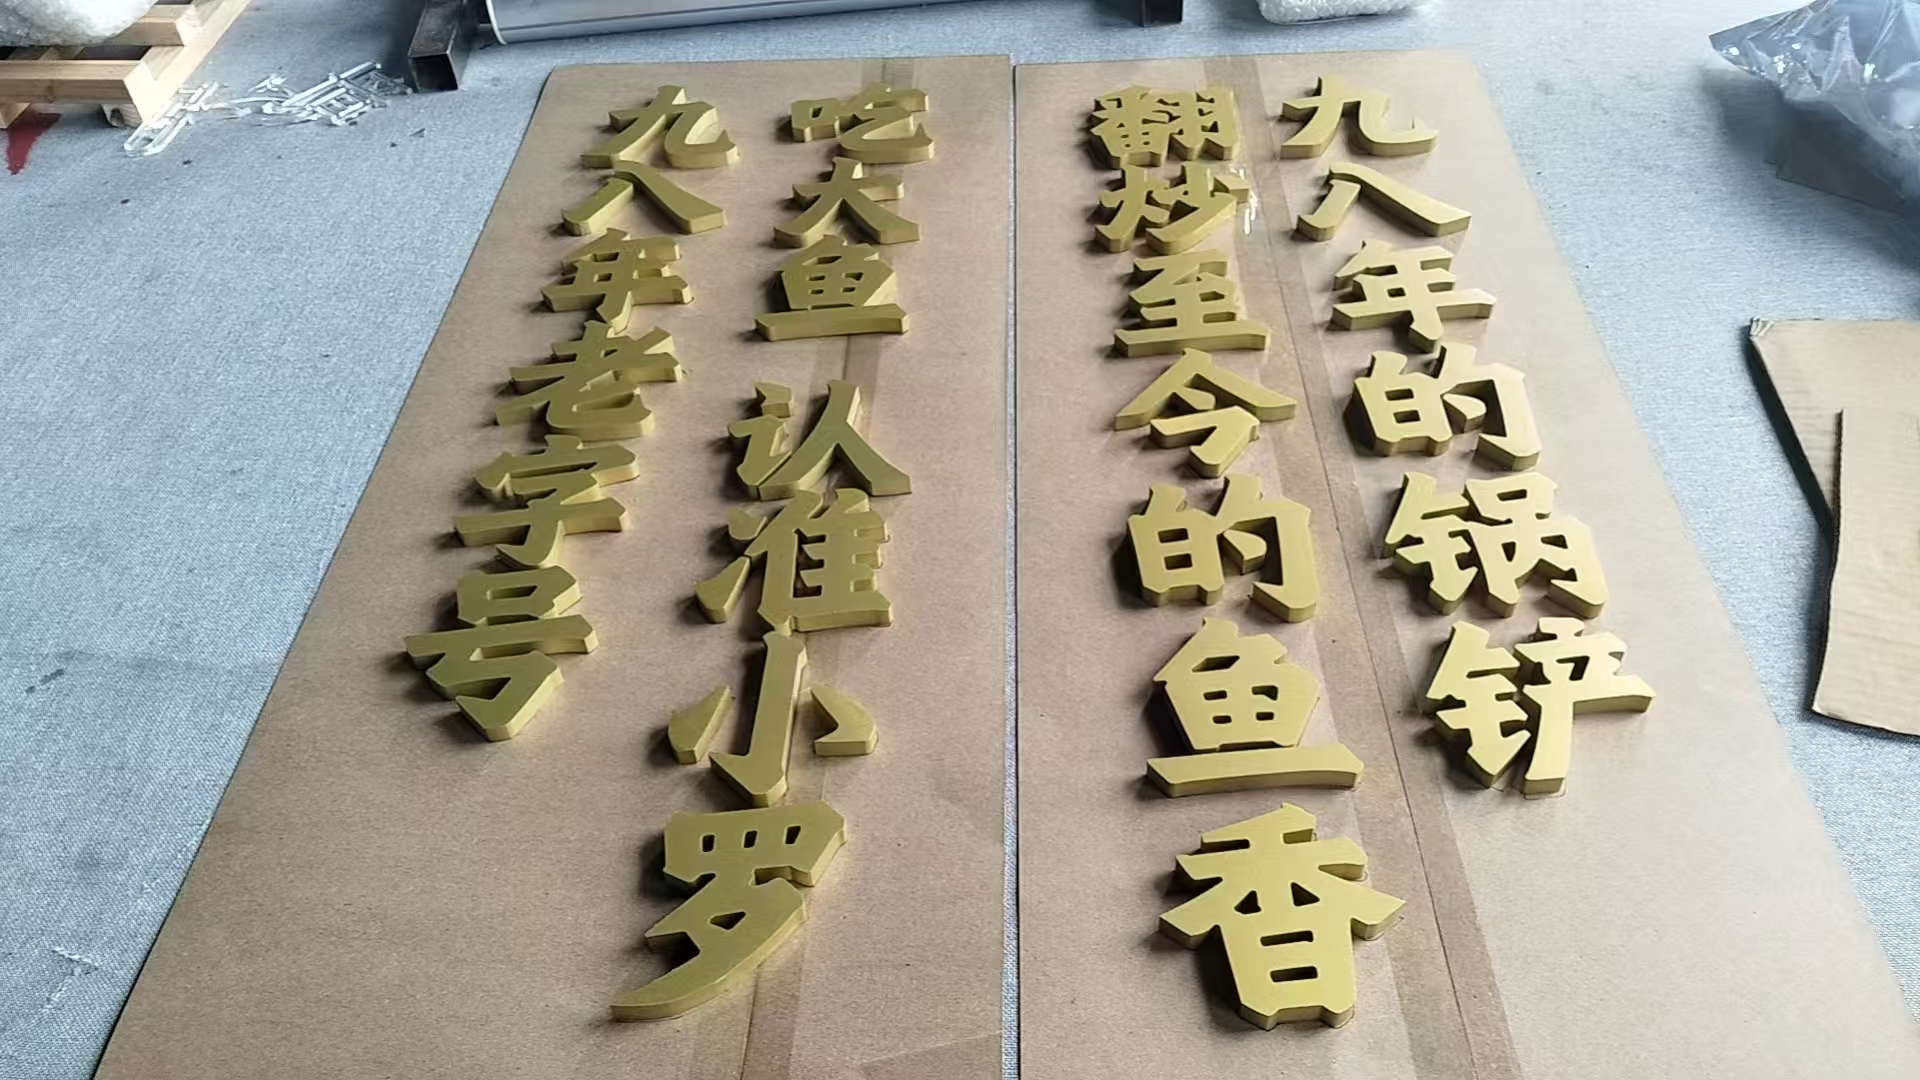 九八年的锅铲
翻炒至今的鱼香
吃大鱼 认准小罗
九八年老字号